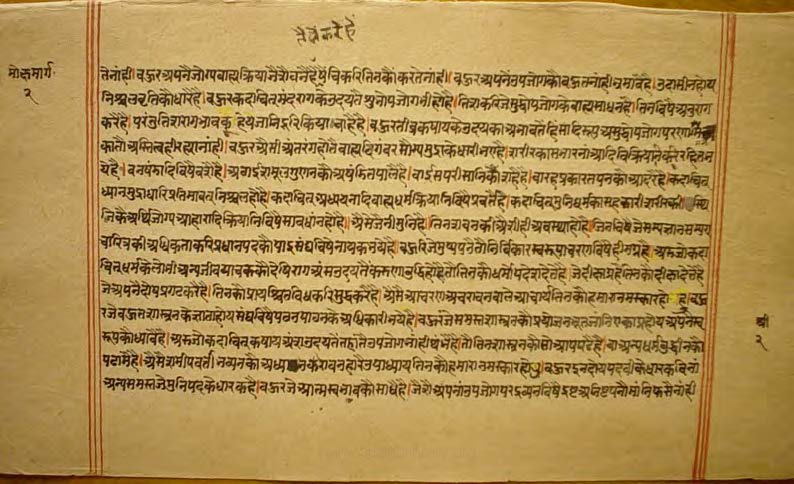 तैसैं करै हैं
मोक्षमार्ग
२
तेनांही। बहुरि अपनै जोग्य बाह्य क्रिया जैसै बनै है खैंचिकरि तिनकौं करते नांही। बहुरि अपने उपजोगकौं बहुत नांही भ्रमावै है। उदासीन होय
निश्चल वृत्तिकौं धारै है। बहुरि कदाचित् मंदरागके उदयतैं शुभोपजोग भी हो है। तिसकरि जे शुद्धोपजोगके बाह्य साधन है। तिनविषै अनुराग
करै है। परंतु तिस रागभावकूं हेय जानि दूरि किया चाहै है। बहुरि तीव्र कषायके उदयका अभावतैं हिंसादिरूप अशुद्धोपजोग परणति
का तौ अस्तित्वही रह्या नांही। बहुरि अैसी अंतरंग होतैं बाह्य दिगंबर सोम्यमुद्राके धारी भए है। शरीरका सवारना आदि विक्रियातैं रहित भ
ये है। वनषंडादिविषै वसै है। अठाईश मूलगुणनकौ अषंडित पालै है। बाईस परीसहनिकौं सहै है। बारह प्रकार तपनकौ आदरै है। कदाचित्
ध्यानमुद्राधारि प्रतिमावत् निश्चल होहै। कदाचित् अध्ययनादि बाह्य धर्मक्रियानिविषै प्रवर्त्तै है। कदाचित् मुनिधर्मका सहकारी शरीरकी स्थि
तिकै अर्थि जोग्य आहारादि क्रियानिविषै सावधान होहै। अैसे जैनी मुनि है। तिन सबनकी अैसीही अवस्था होहै। तिनविषै जे सम्यग्ज्ञान सम्यग्
चारित्रकी अधिकताकरि प्रधानपदकौ पाइ संघविषै नायक भये है। बहुरि जे मुख्यपनै तौ निर्विकल्प स्वरूपाचरणविषैही मग्न है। अरु जो कदा
चित् धर्मके लोभी अन्य जीव याचककौ देषि राग अंस उदयतैं करुणाबुद्धि होइ तौ तिनकौ धर्मोपदेश देते है। जे दीक्षाग्राहक है तिनकौ दीक्षा देते है
जे अपने दोष प्रगट करै है। तिनकौ प्रायश्चित विधिकरि शुद्ध करै है। अैसै आचरण अचरावनवाले आचार्य तिनकौ हमारा नमस्कार होहु। बहु
रि जे बहुत शास्त्रनके ज्ञाता होय संघविषै पठन पाठनके अधिकारी भये है। बहुरि जे समस्त शास्त्रनकौ प्रयोजनभूत जांनि एकाग्र होय अपनेस्व
रूपकौ ध्यावै है। अरु जो कदाचित् कषाय अंश उदयतैं तहां तैं उपजोग नांही थंभै है। तौ तिन शास्त्रनकौ सो आप पढै है। वा अन्य धर्मबुद्धीनकौ
पढावै है। अैसै समीपवर्ती भव्यनकौ अध्ययन करावनहारे उपाध्याय तिनकौ हमारा नमस्कार होहु। बहुरि इन दोय पदवीके धारक विनां
अन्य समस्त जे मुनिपदके धारक है। बहुरि जे आत्मस्वभावकौ साधै है। जैसै अपनां उपजोग परद्रव्यनविषै इष्ट अनिष्टपनौ मांनि फसै नांही
श्री
२